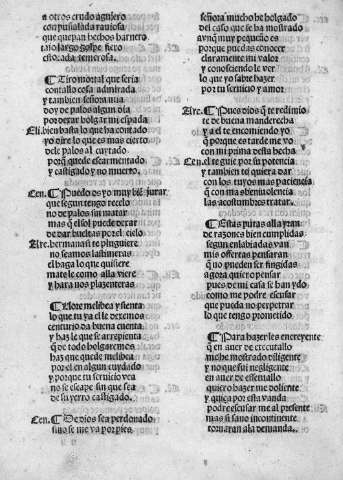 a otros crudo aguero
con puñalada rauiosa
que quepan hechos barnero
tajo largo golpe fiero
estocada temerosa.
Tiro mortal que seria
contallo cosa admirada
y tambien señora mia
doy de palos algun dia
por dexar holgar mi espada
Eli. bien basta lo que ha contado
yo oyre lo que es mas cierto
dele palos al cuytado
porq̃ quede escarmentado
y castigado y no muerto.
Cen. Puedo os yo muy biẽ jurar
que segun tengo recelo
no de palos sin matar
mas q̃ el sol puede dexar
de dar bueltas por el cielo
Are. hermana si te pluguiere
no seamos lastimeras
el haga lo que quisiere
mate le como alla viere
y hara nos plazenteras
Llore melibea y sienta
lo que tu ya el le dexemos
centurio da buena cuenta
y haz le que se arrepienta
que de todo holgaremos
haz que quede melibea
por el en algun cuydado
y porque tu seruicio vea
no se escape sin que sea
de su yerro castigado.
Cen. De dios sea perdonado
sino se me va por pies.
señora mucho he holgado
del caso que se ha mostrado
aunq̃ muy pequeño es
porque puedas conocer
claramente mi valor
y conosciendo le ver
lo que yo sabre hazer
por tu seruicio y amor
Are. Pues dios q̃ te redimio
te de buena manderecha
y a el te encomiendo yo
porque es tarde me vo
con mi prima desta hecha
Cen. el te guie por su potencia
y tambien te quiera dar
con los tuyos mas paciencia
q̃ con mas beniuolencia
las acostumbres tratar.
Estas putas alla yran
de razones bien cumplidas
segun enlabiadas van
mis offertas pensaran
q̃ no pueden ser fingidas
agora quiero pensar
pues de mi casa se han ydo
como me podre escusar
que pueda no perpetrar
lo que tengo prometido
Para hazer les encreyente
q̃ en auer de executallo
me he mostrado diligente
y no que fui negligente
en auer de essentallo
quiero hazer me doliente
y quiça por esta vanda
podre escusar me al presente
mas si sano incontinente
tornaran ala demanda.